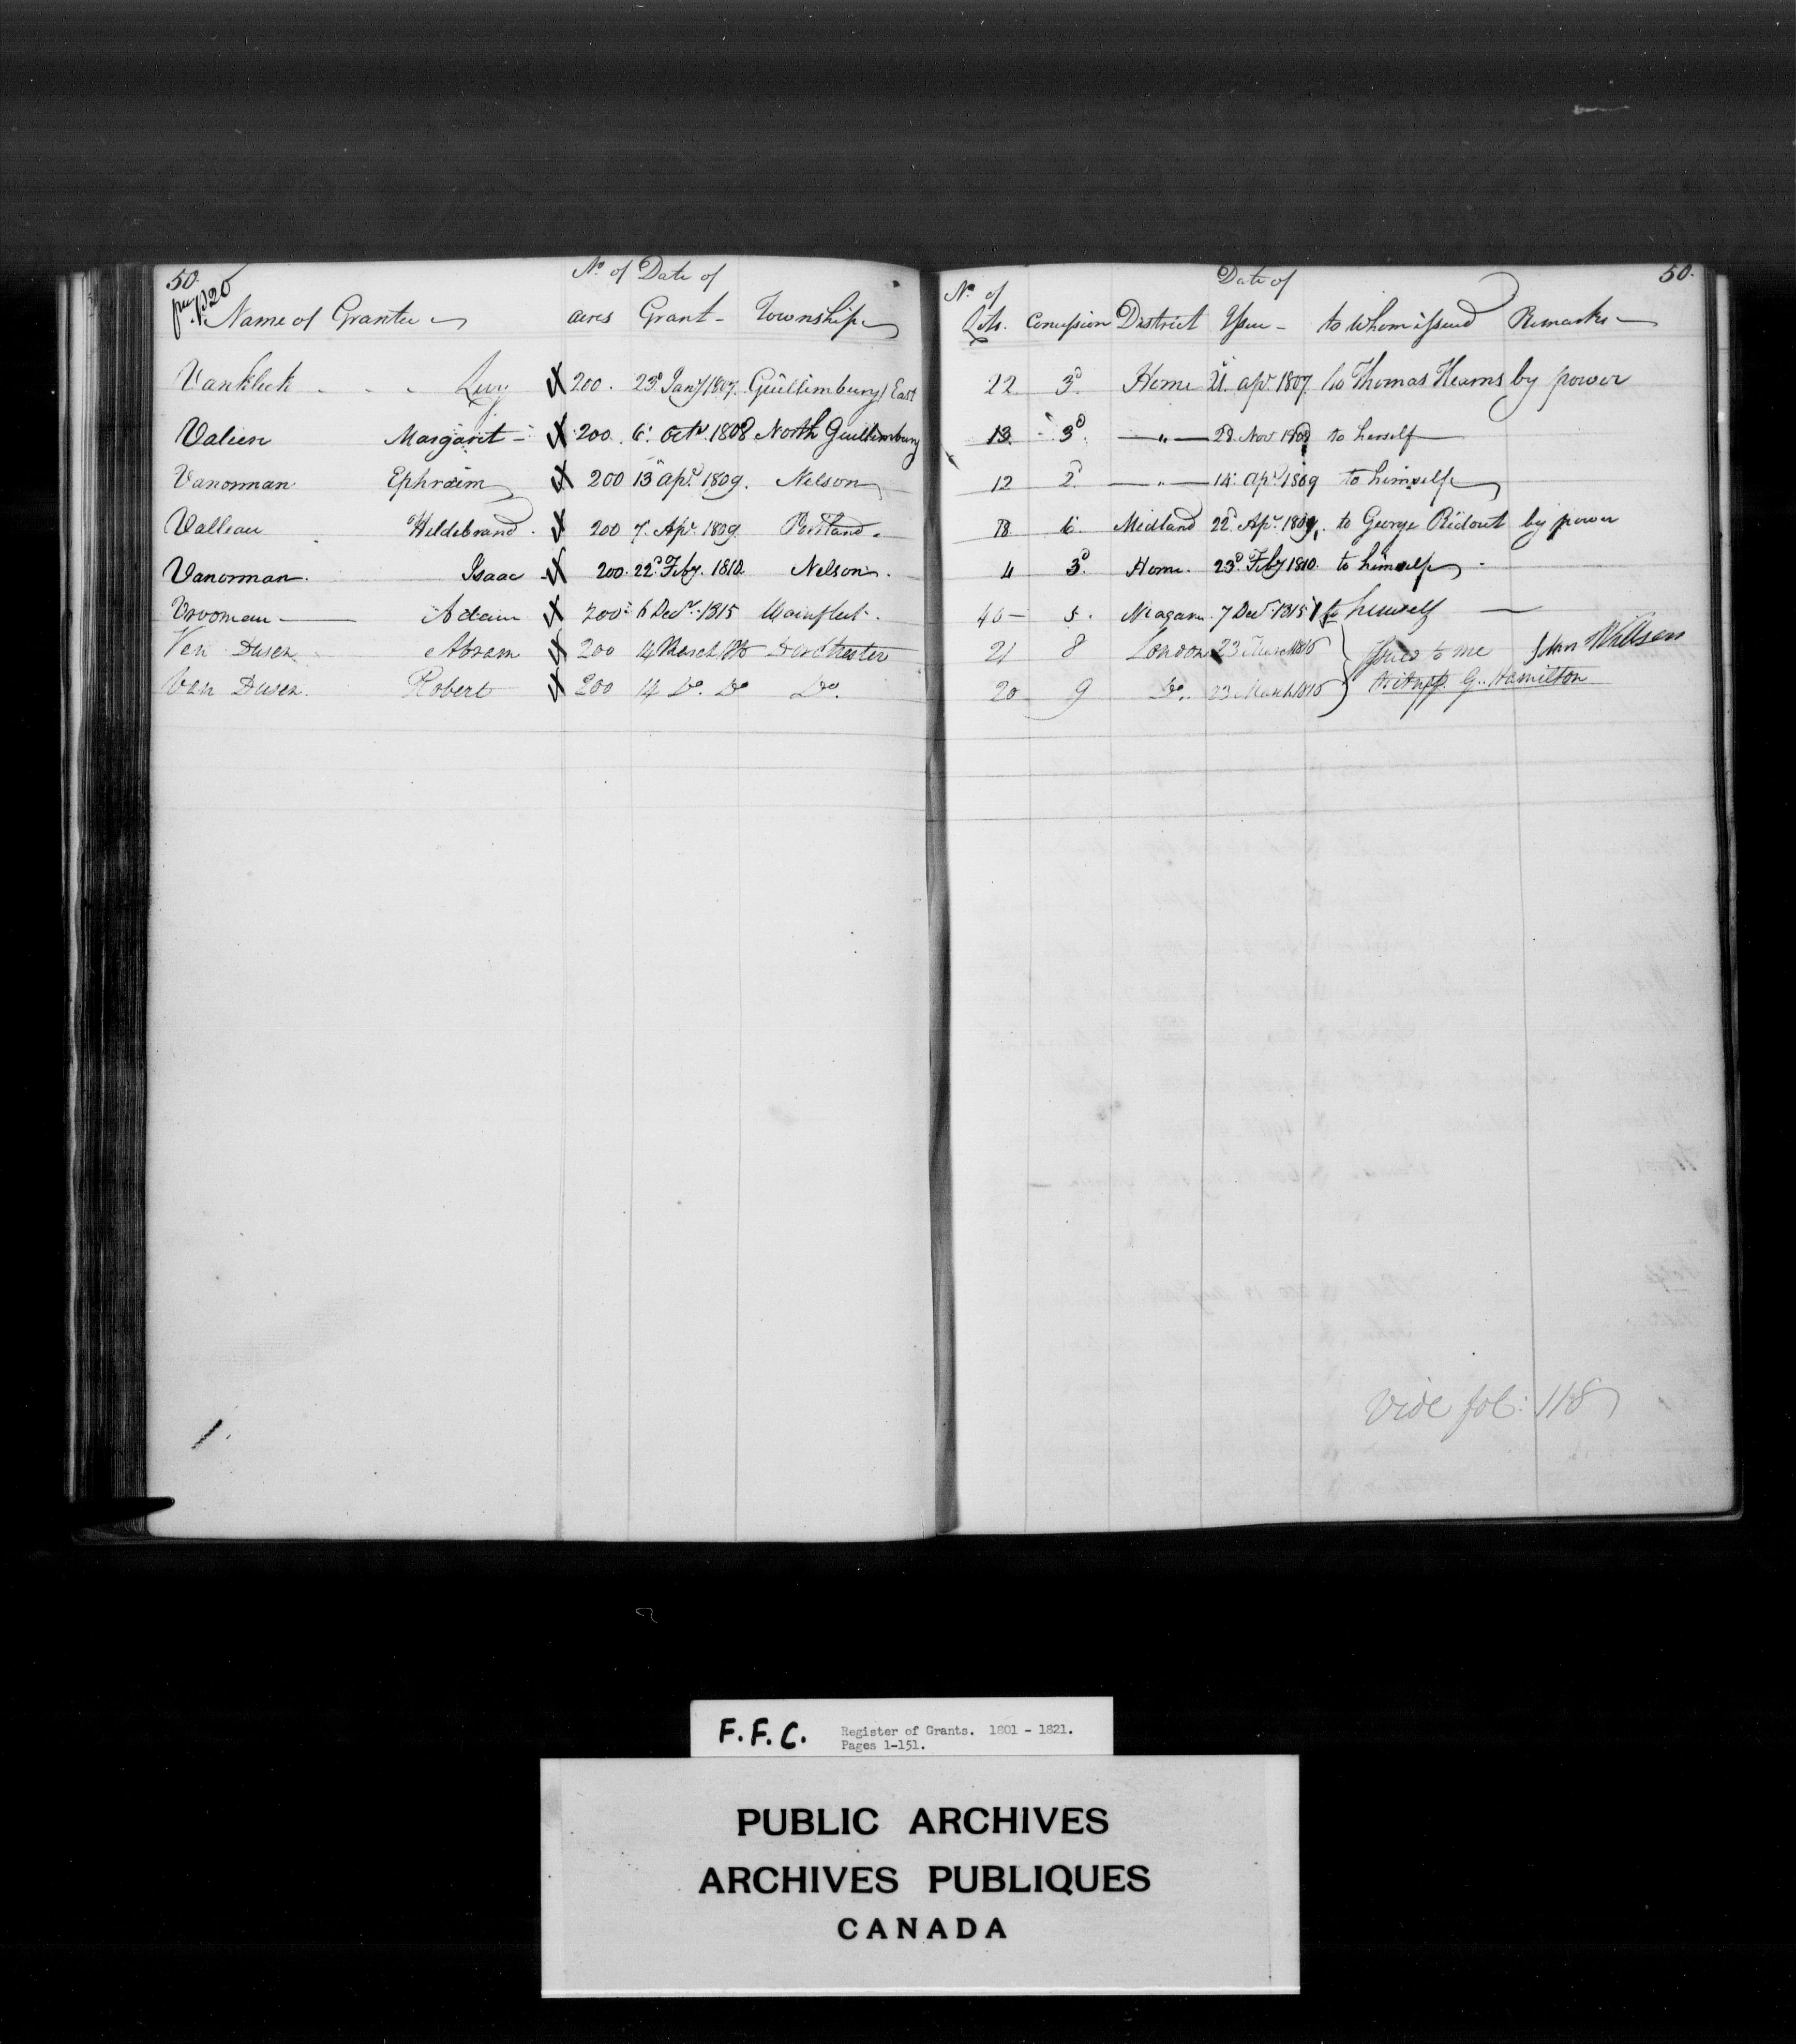 50.
No. of Date of
Name of Grantee acres Grant Township
Vankleek Levy 200. 23d Jany 1807. Guillimbury East
Valien Margaret 200. 6. Octr. 1808 North Guillimbury
Vanorman Ephraim 200 13 apl. 1809. Nelson
Valleau Hildebrand. 200 7. Apr. 1809. Portland.
Vanorman. Isaac 200. 22d Feby. 1810. Nelson.
Vrooman Adam 200 6 Decr. 1815 Wainfleet.
Van Dusen Abram 200 14 March 1816 Dorchester
Van Dusen. Robert 200 14 Do. Do Do.
50.
No. of Date of
Lots. Concession District Issue to whom issued Remarks
22 3d. Home 21. apr. 1807. to Thomas Hearns by power
13. 3d. " 28 Novr. 1808 to herself
12 2d. " 14. apl. 1809 to himself
18. 6. Midland 22d. Apr. 1809, to George Ridout by power
4 3d. Home. 23d. Feby 1810. to himself
46 5. Niagara 7 Decr. 1815 to himself
21 8 London 23 March 1816 Issued to me John Willson
20 9 Do. 23 March 1816 G. Hamilton
Vide fol: 118
F.F.C. Register of Grants. 1801 - 1821.
Pages 1-151.
PUBLIC ARCHIVES
ARCHIVES PUBLIQUES
CANADA